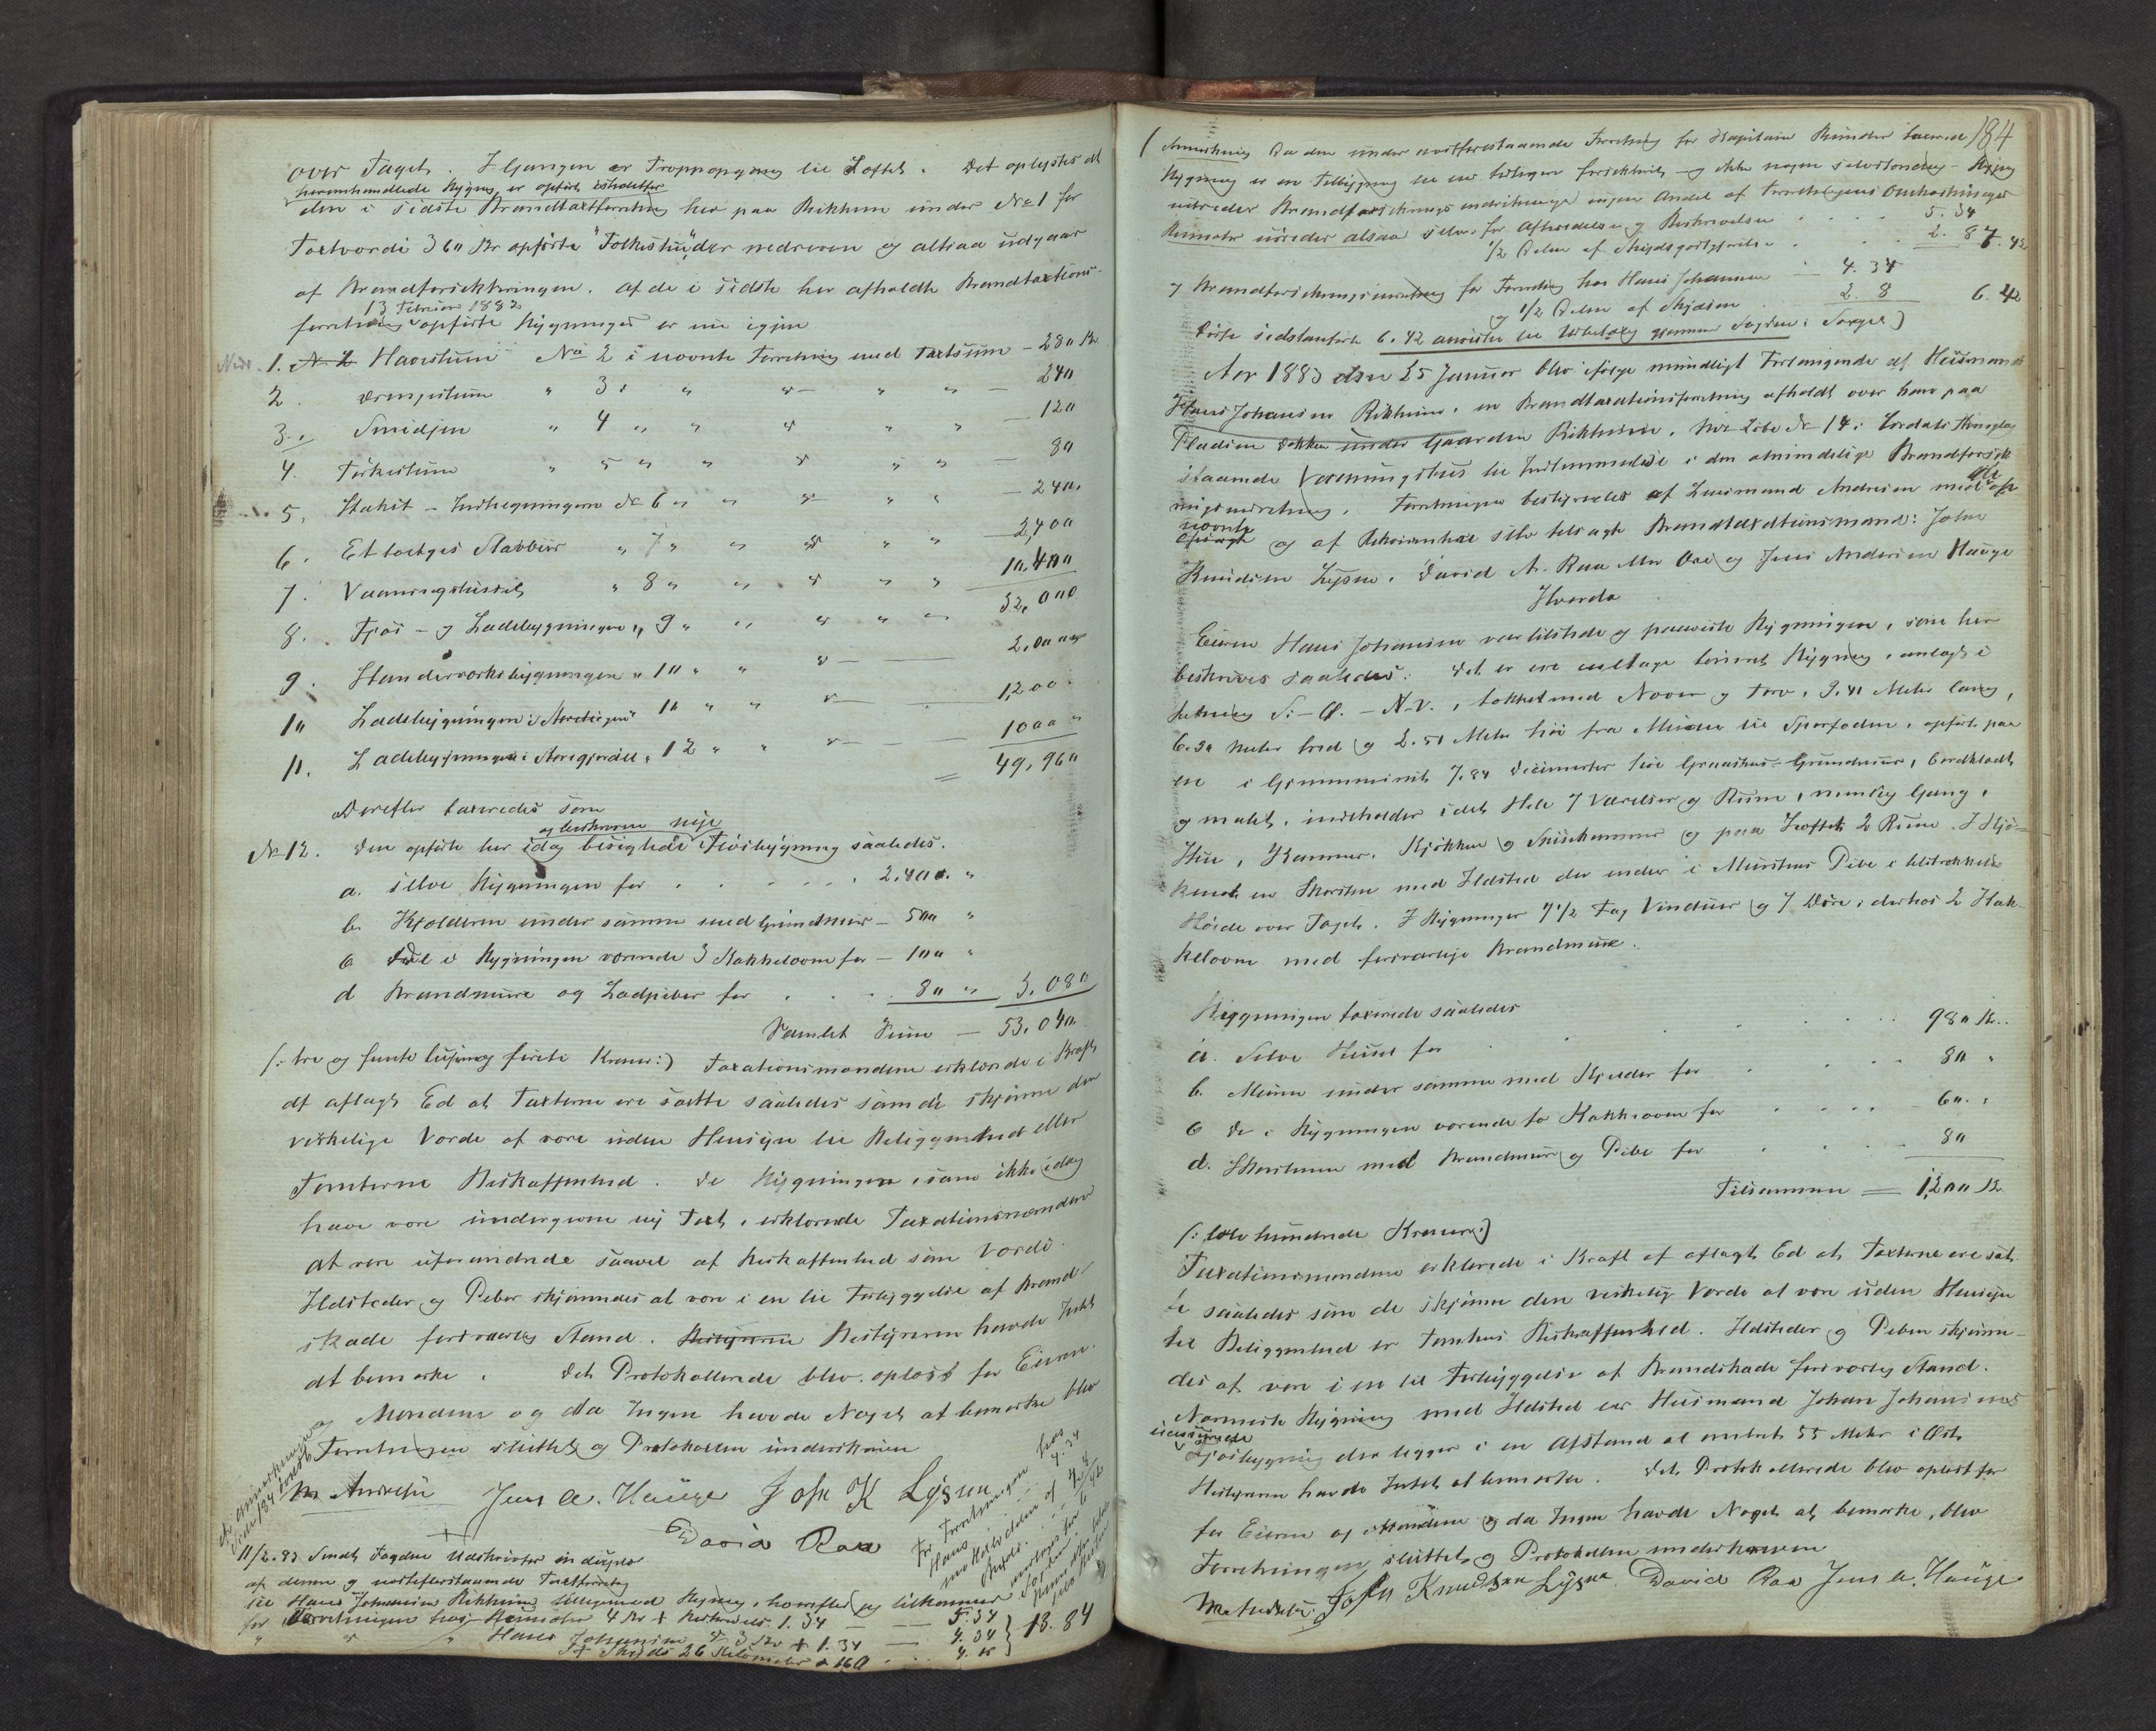 over Taget. I Gangen er Troppopgang til Loftet. Det oplystes at
heromhandlede Bygning er opført istedetfor
den i sidste Brandtaxtforretning her paa Rikheim under No 1 for
Taxtværdi 360 Kr opførte "Folkestue", der nedreven og altsaa udgaar
af Brandforsikkringen. Af de i sidste her afholdte Brandtaxtions-
13 Februar 1882
forretning opførte Bygninger er nu igjen
1. Havrstuen No 2 i nævnte Forretning med Taxtsum – 280 Kr
2. Drengestuen " 3 " " " " – 240
3. Smidjen " 4 " " " " – 120
4. Tørkestuen " 5 " " " " – 80
5. Stakit – Indhegningerne No 6 " " " " – 240.
6. Et toetges Stabbur " 7 " " " " 2,400
7. Vaaningshuset " 8 " " " " 10.400
8. Fjøs – og Ladebygningen " 9 " " " " 32,000
9. Standerværksbygningen " 10 " " " 2,000
10 Ladebygningen i 11 " " " 1,200
11. Ladebygningen i Storegjærdet " 12 " " " 1000 "
= 49,960
Derefter taxeredes som
og beskrevne nye
No 12. den opførte her idag besigtede Fløibygning saaledes.
a. selve Bygningen for . . . . . 2,400. "
b. Kjelderen under samme med Grundmur – 500 "
c de i Bygningen værende 3 Kakkelovne for – 100 "
d Brandmure og Ladpiber for . . . 80 " 3,080
Samlet Sum — 53,040
(: tre og femti tusinde firti Kroner :) Taxationsmændene erklærede i Kraft
af aflagt Ed at Taxterne ere satte saaledes som de skjønne den
virkelige Værde at være uden Hensyn til Beliggenhed eller
Tomternes Beskaffenhed. De Bygninger, som ikke idag
have være undergivne ny Taxt, erklærede Taxationsmændene
at være uforandrede saavel af Beskaffenhed som Værdi.
Ildsteder og Piber skjønnedes at være i en til Forbyggelse af Brand-
skade forsvarlig Stand. Bestyreren Bestyreren havde Intet
at bemærke. Det Protokollerede blev oplæst for Eieren
og Mændene og da Ingen havde Noget at bemærke blev
Forretningen sluttet og Protokollen underskreven
M Andresen Jens A. Hauge John K Lysne
David Raa
11/2.83 Sendt Fogden Udskrifter in duplo
af denne og næstefterstaaende Taxtforretning
til Hans Johannesen Rikheim
for Forretningen hos 4 Kr + Beskrivels 1.34 — 5.34
" " " Hans Johannesen 3 Kr + 1.34 — 4.34 } 13.84
Skyds 26 Kilometer a 16 Ø . . 4.16
184
(Anmerkning Da den under næstforestaaende Forretning for Kapitain taxerede
Bygning er en Tilbygning til en tidligere forsikkret – og ikke nogen selvstændig – Bygning
udreder Brandforsikringsindretningen ingen Andel af Forretningens Omkostninger
udreder altsaa selv: for Afholdelse og Beskrivelse . . 5.34
1/2 Delen af Skydsgodtgjørelse . . . 2. 8 7.42
og Brandforsikringsindretning for Forretning hos Hans Johannesen — 4.34
og 1/2 Delen af Skydsen 2. 8 6.42
Disse sidstanførte 6.42 anvises til Udbetaling gjennem Fogden i Sogn)
Aar 1883 den 25 Januar blev ifølge mundligt Forlangende af Husmand
Hans Johannesen Rikheim, en Brandtaxationsforretning afholdt over hans paa
Pladsen Bakken under Gaarden Rikheim, Mtr Løbe No 14 i Lærdals Thinglag
staaende Vaaningshus til Indlemmelse i den almindelige Brandforsik-
ringsindretning. Forretningen bestyredes af Lensmand Andresen med
nævnte og af Rekvirenten selv tilsagte Brandtaxationsmænd: John
Knudsen Lysne, David A. Raa Mn Øvri og Jens Andersen Hauge
Hvorda
Eieren Hans Johannesen var tilstede og paaviste Bygningen, som her
beskrives saaledes: Det er en enetages tømret Bygning, anlagt i
Retning S.-Ø. – N.V., tækket med Næver og Torv, 9.41 Meter lang,
6.30 Meter bred og 2.51 Meter høi fra Muren til Sparfoden, opført paa
en i Gjennemsnit 7.84 Decimeter høi Graastens-Grundmur, bordklædt
og malet, indeholder i det Hele 7 Værelser og Rum, nemlig Gang,
Stue, Kammer, Kjøkken og Spisekammer og paa Loftet 2 Rum. I Kjø-
kenet en Skorsten med Ildsted der ender i Murstens Pibe i tilstrækkelig
Høide over Taget. I Bygningen 7 1/2 Fag Vinduer og 7 Døre, derhos 2 Kak-
kelovne med forsvarlige Brandmure.
Bygningen taxerede saaledes
a. Selve Huset for . . . . . 980 Kr.
b. Muren under samme med Kjelder for . . . 80 "
c De i Bygningen værende to Kakkelovne for . . . 60. "
d. Skorstenen med Brandmure og Pibe for . . . 80
Tilsammen — 1,200 Kr
(: tolv hundrede Kroner :)
Taxationsmændene erklærede i Kraft af aflagt Ed at Taxterne ere sat-
te saaledes som de skjønne den virkelig Værde at være uden Hensyn
til Beliggenhed er Tomtens Beskaffenhed. Ildsteder og Piben skjønne-
des at være i en til Forbyggelse af Brandskade forsvarlig Stand.
Nærmeste Bygning med Ildsted er Husmand Johan Johannesens
Fjøsbygning der ligger i en Afstand af omtrent 55 Meter i Øst.
Bestyreren havde Intet at bemærke. Det Protokollerede blev oplæst for
for Eieren og Mændene og da Ingen havde Noget at bemærke, blev
Forretningen sluttet og Protokollen underskreven
M Andresen John Knudsen Lysne David Raa Jens A. Hauge